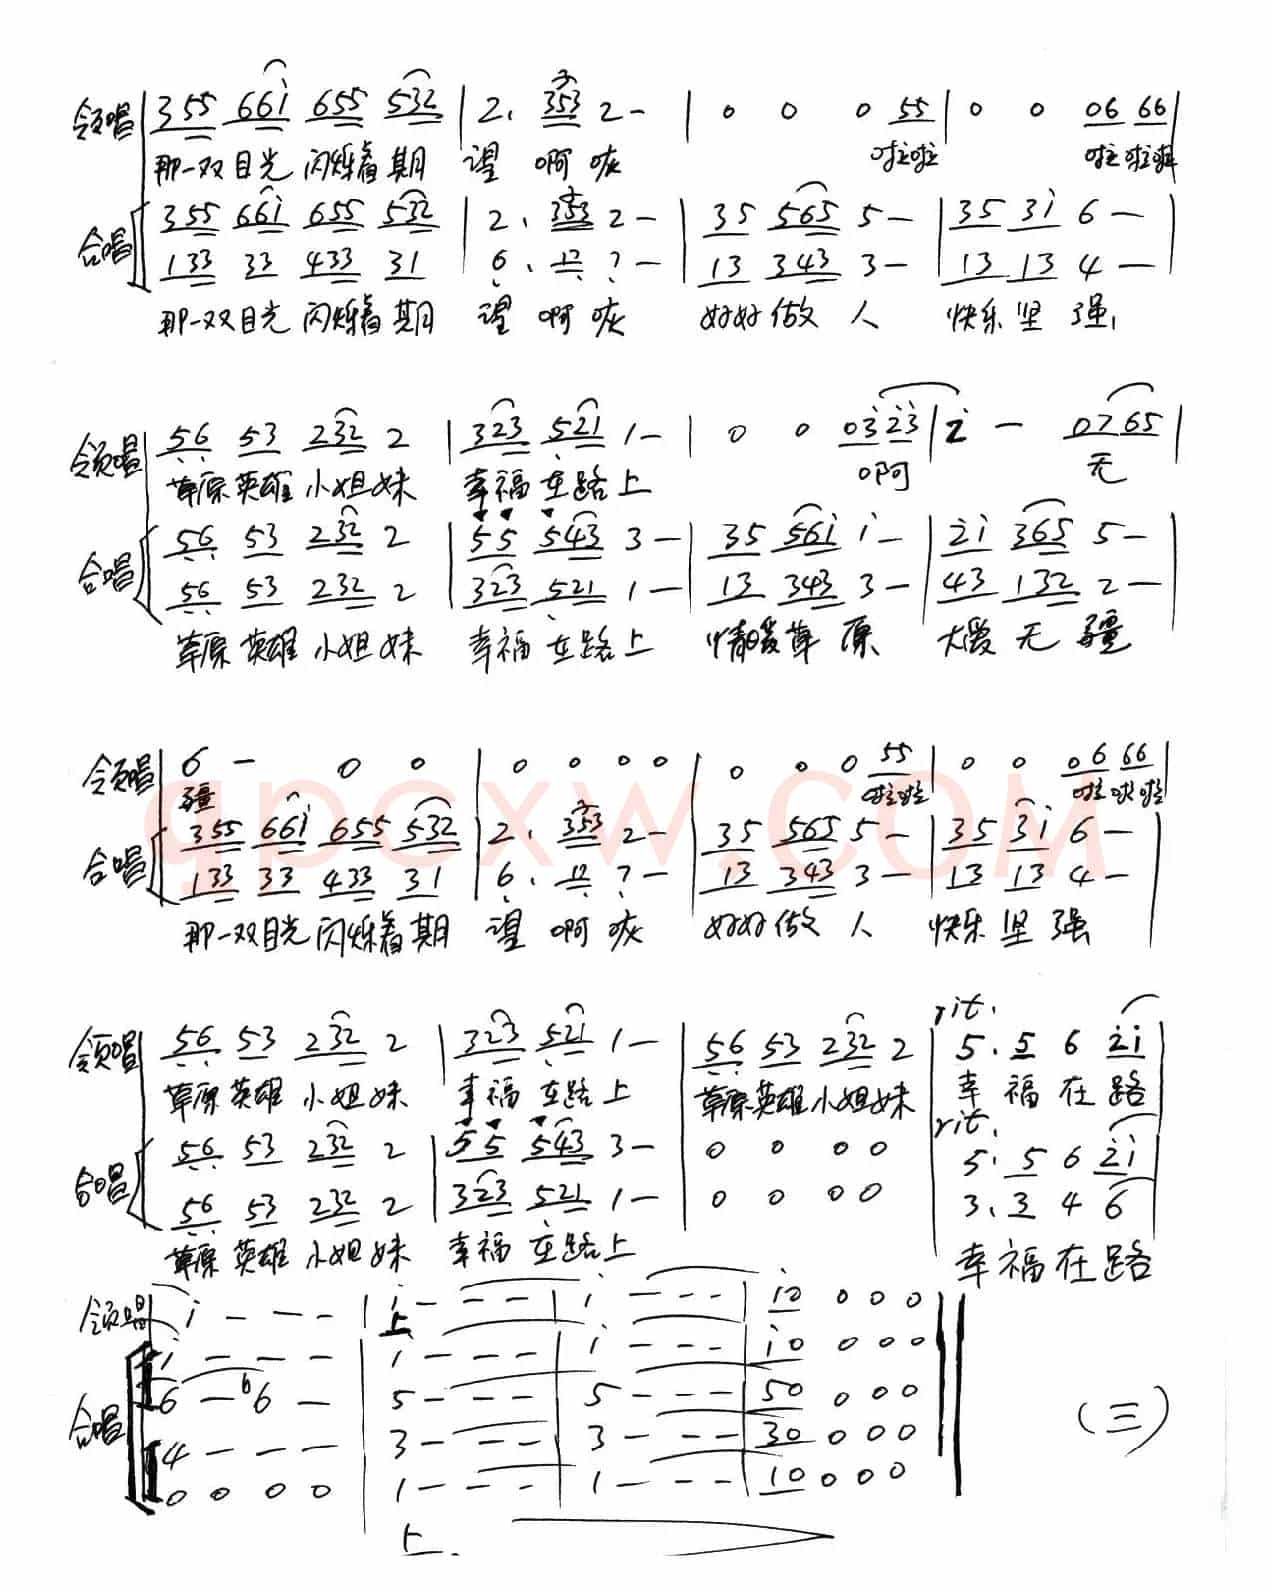 领唱 3 55 66i 655 532 | 2. 353 2 – | 0 0 0 55 | 0 0 06 66 |
那一双目光 闪烁着期 望 啊 咴 啦啦 啦啦啦
合唱 355 66i 655 532 | 2. 353 2 – | 35 565 5 – | 35 3i 6 – |
133 33 433 31 | 6. 12 7 – | 13 343 3 – | 13 13 4 – |
那一双目光 闪烁着期 望 啊 咴 好好做 人 快乐坚 强,
领唱 56 53 232 2 | 323 521 1 – | 0 0 03̇2̇3̇ | 2̇ – 0765 |
草原英雄 小姐妹 幸福 在路上 啊 无
合唱 56 53 232 2 | 55 543 3 – | 35 56i i – | 2̇i 365 5 – |
56 53 232 2 | 323 521 1 – | 13 343 3 – | 43 132 2 – |
草原英雄 小姐妹 幸福 在路上 情暖草 原 大爱 无 疆
领唱 6 – 0 0 | 0 0 0 0 | 0 0 0 55 | 0 0 06 66 |
疆 啦啦 啦啦啦
合唱 355 66i 655 532 | 2. 353 2 – | 35 565 5 – | 35 3i 6 – |
133 33 433 31 | 6. 12 7 – | 13 343 3 – | 13 13 4 – |
那一双目光 闪烁着期 望 啊 咴 好好做 人 快乐 坚 强
qpcxw.com
rit.
领唱 56 53 232 2 | 323 521 1 – | 56 53 232 2 | 5. 5 6 2̇i |
草原英雄 小姐妹 幸福 在路上 草原英雄小姐妹 幸福在路
rit.
合唱 56 53 232 2 | 55 543 3 – | 0 0 0 0 | 5. 5 6 2̇i |
56 53 232 2 | 323 521 1 – | 0 0 0 0 | 3. 3 4 6 |
草原英雄 小姐妹 幸福 在路上 幸福在路
领唱 i – – – | i – – – | i – – – | i0 0 0 0 ‖
上
合唱 i – – – | i – – – | i – – – | i0 0 0 0
6 – 6 – | 5 – – – | 5 – – – | 50 0 0 0
4 – – – | 3 – – – | 3 – – – | 30 0 0 0
0 0 0 0 | 1 – – – | 1 – – – | 10 0 0 0
上.
(三)